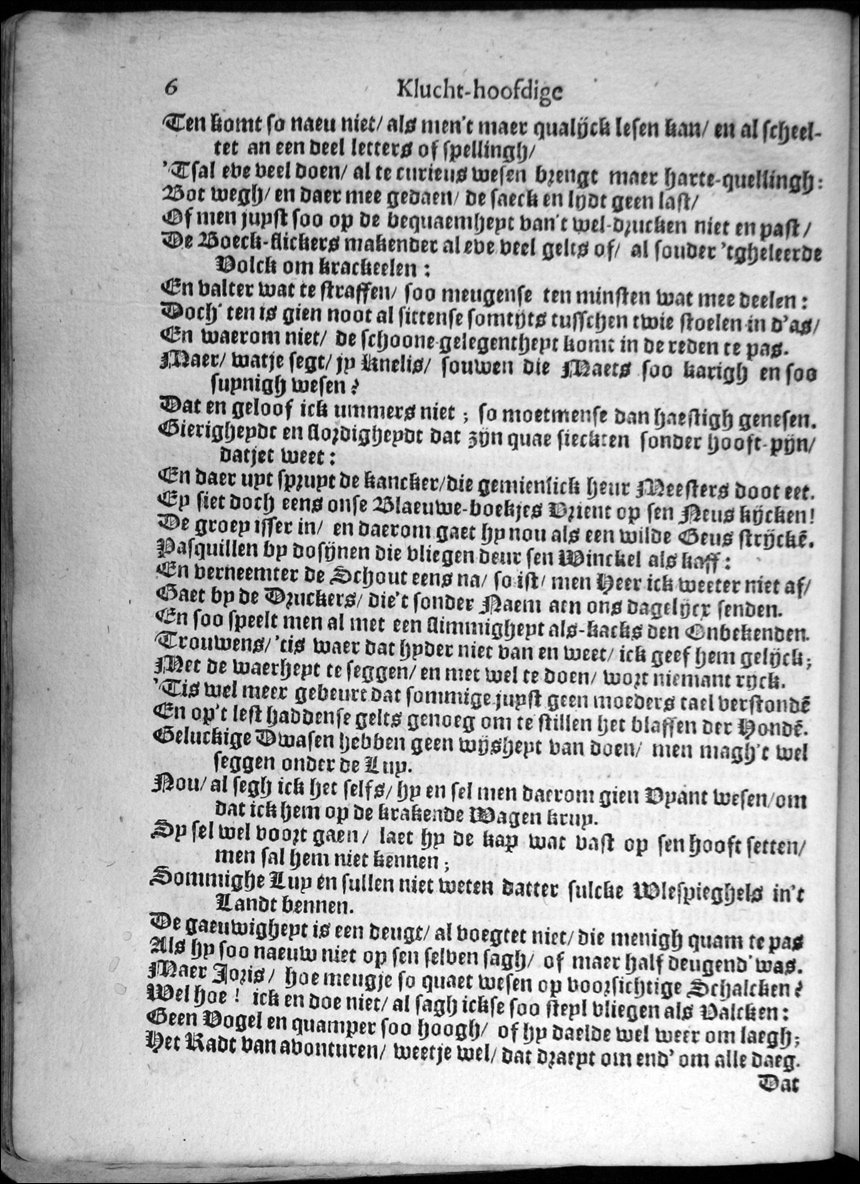 6 Klucht-hoofdige
Ten komt so naeu niet/ als men't maer qualijck lesen kan/ en al scheel-
tet an een deel letters of spellingh/
'Tsal eve veel doen/ al te curieus wesen brengt maer harte-quellingh:
Bot wegh/ en daer mee gedaen/ de saeck en lydt geen last/
Of men juyst soo op de bequaemheyt van't wel-drucken niet en past/
De Boeck-flickers makender al eve veel gelts of/ al souder 'tgheleerde
Volck om krackeelen:
En valter wat te straffen/ soo meugense ten minsten wat mee deelen:
Doch' ten is gien noot al sittense somtyts tusschen twie stoelen in d'as/
En waerom niet/ de schoone gelegentheyt komt in de reden te pas.
Maer/ watje segt/ jy Knelis/ souwen die Maets soo karigh en soo
suynigh wesen?
Dat en geloof ick ummers niet; so moetmense dan haestigh genesen.
Gierigheydt en slordigheydt dat zijn quae sieckten sonder hooft-pijn/
datjet weet:
En daer uyt spruyt de kancker/ die gemienlick heur Meesters doot eet.
Ey siet doch eens onse Blaeuwe-boekjes Vrient op sen Neus kijcken!
De groey isser in/ en daerom gaet hy nou als een wilde Geus strijckē.
Pasquillen by dosijnen die vliegen deur sen Winckel als kaff:
En verneemter de Schout eens na/ so ist/ men Heer ick weeter niet af/
Gaet by de Druckers/ die't sonder Naem aen ons dagelijcx senden.
En soo speelt men al met een slimmigheyt als-kacks den Onbekenden.
Trouwens/ 'tis waer dat hyder niet van en weet/ ick geef hem gelijck;
Met de waerheyt te seggen/ en met wel te doen/ wort niemant ryck.
'Tis wel meer gebeurt dat sommige juyst geen moeders tael verstondē
En op't lest haddense gelts genoeg om te stillen het blaffen der Hondē.
Geluckige Dwasen hebben geen wijsheyt van doen/ men magh't wel
seggen onder de Luy.
Nou/ al segh ick het selfs/ hy en sel men daerom gien Vyant wesen/ om
dat ick hem op de krakende Wagen kruy.
Sy sel wel voort gaen/ laet hy de kap wat vast op sen hooft setten/
men sal hem niet kennen;
Sommighe Luy en sullen niet weten datter sulcke Wlespieghels in't
Landt bennen.
De gaeuwigheyt is een deugt/ al voegtet niet/ die menigh quam te pas
Als hy soo naeuw niet op sen selven sagh/ of maer half deugend' was.
Maer Joris/ hoe meugje so quaet wesen op voorsichtige Schalcken?
Wel hoe! ick en doe niet/ al sagh ickse soo steyl vliegen als Valcken:
Geen Vogel en quamper soo hoogh/ of hy daelde wel weer om laegh;
Het Radt van avonturen/ weetje wel/ dat draeyt om end' om alle daeg.
Dat